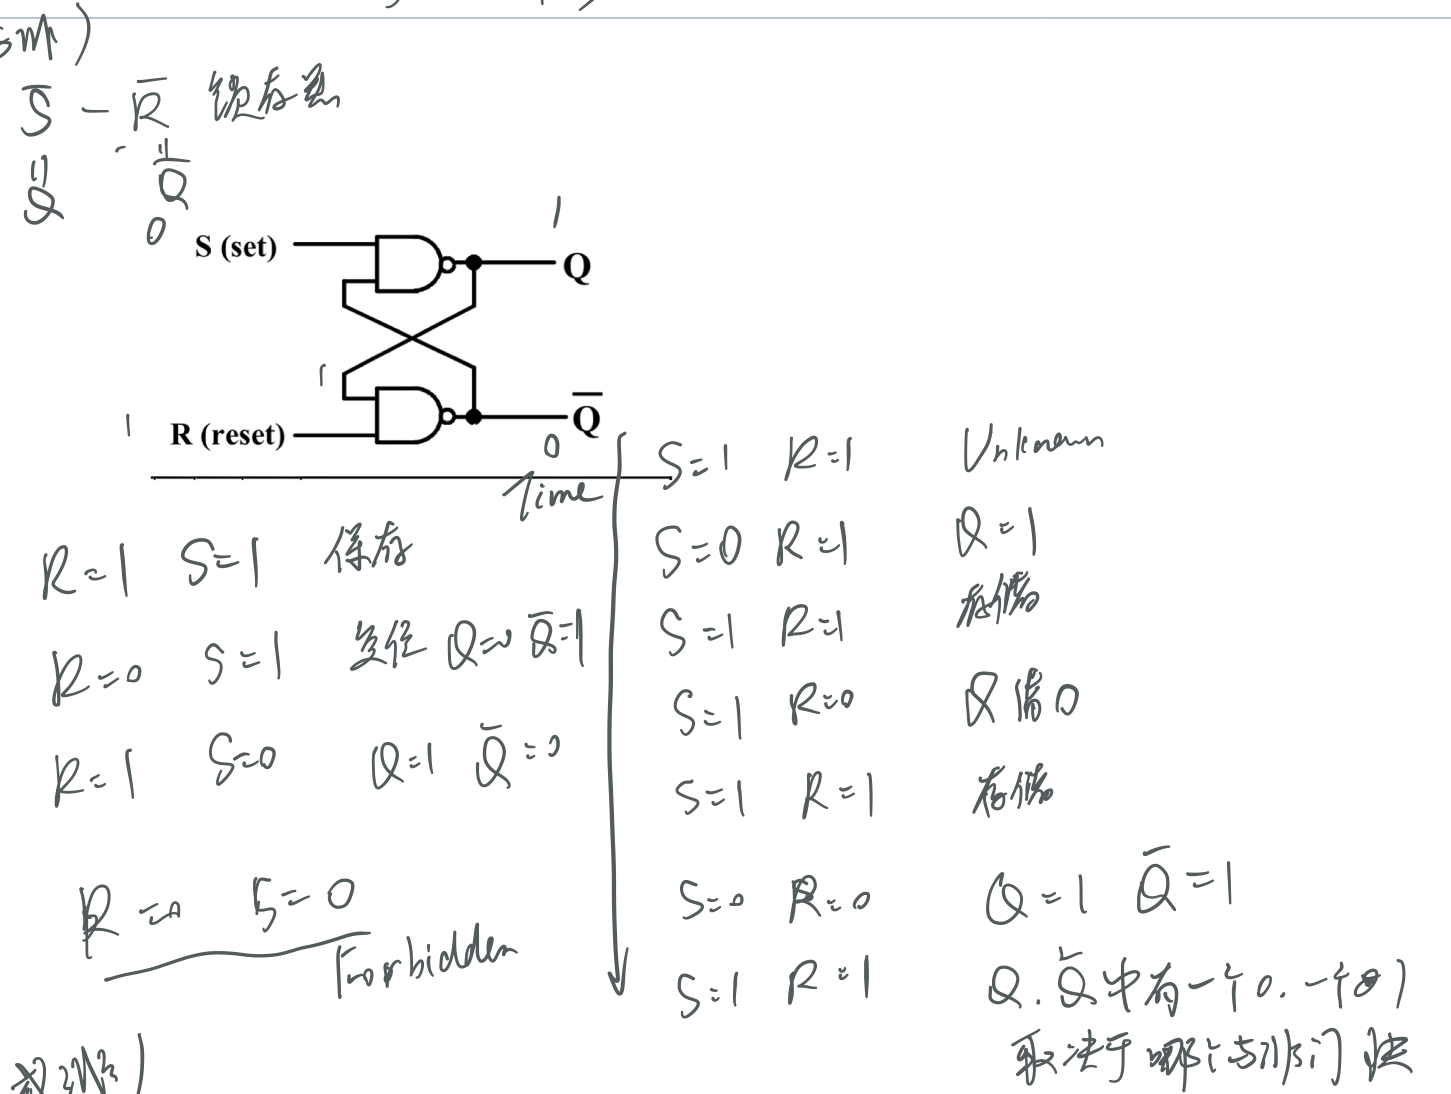 S̅ - R̅ 锁存器
Q Q̅
0
1
S (set)
Q
1
1
R (reset)
Q̅
0
R=1 S=1 保存
R=0 S=1 复位 Q=0 Q̅=1
R=1 S=0 Q=1 Q̅=0
R=0 S=0
Forbidden
Time
S=1 R=1 Unknown
S=0 R=1 Q=1
S=1 R=1 存储
S=1 R=0 Q 清 0
S=1 R=1 存储
S=0 R=0 Q=1 Q̅=1
S=1 R=1 Q. Q̅ 中有一个0. 一个1
取决于哪个与非门快